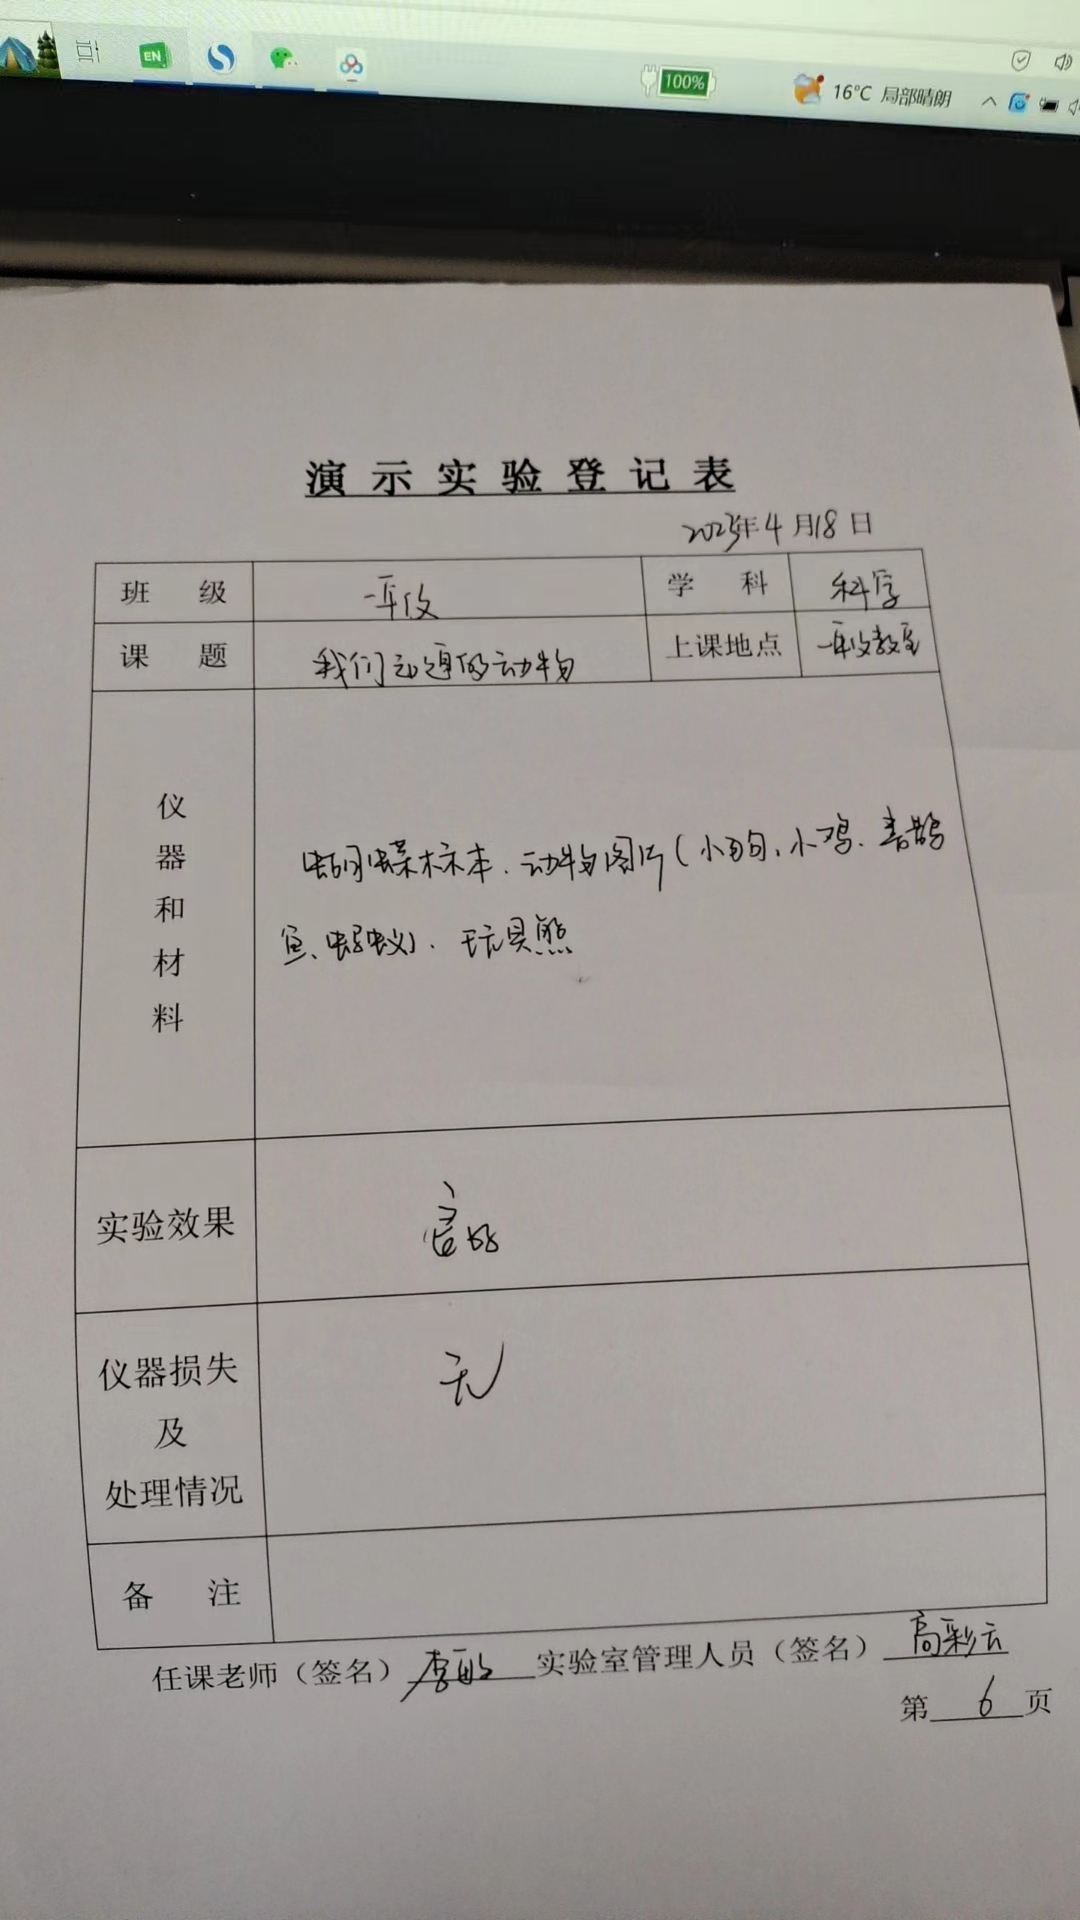 EN
100%
16°C 局部晴朗
演示实验登记表
2023年4月18日
班级 一年级 学科 科学
课题 我们知道的动物 上课地点 一年级教室
仪器和材料
蝴蝶标本、动物图片(小狗、小鸡、青鹊
鱼、蚂蚁)、玩具熊
实验效果
良好
仪器损失
及
处理情况
无
备注
任课老师(签名)李敏 实验室管理人员(签名)高彩云
第6页